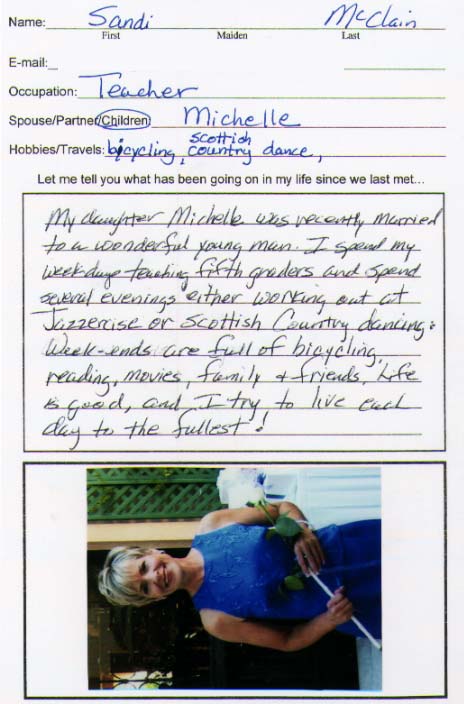 Name: Sandi McClain
First Maiden Last
E-mail:
Occupation: Teacher
Spouse/Partner/Children: Michelle
scottish
Hobbies/Travels: bicycling, country dance,
Let me tell you what has been going on in my life since we last met...
My daughter Michelle was recently married
to a wonderful young man. I spend my
week days teaching fifth graders and spend
several evenings either working out at
Jazzercise or Scottish Country dancing.
Week-ends are full of bicycling,
reading, movies, family + friends. Life
is good, and I try to live each
day to the fullest!